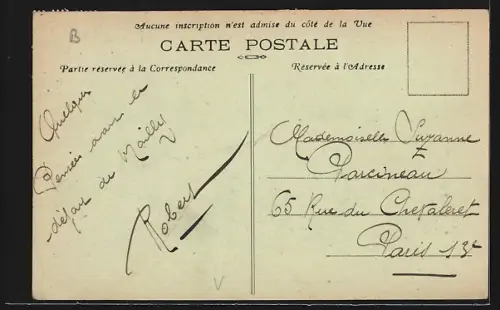 B
Aucune inscription n'est admise du côté de la Vue
CARTE POSTALE
Partie réservée à la Correspondance
Réservée à l'Adresse
Quelques
avant le
départ de Mailly
Robert
Mademoiselle Suzanne
Parcineau
65 Rue du Chevaleret
Paris 13e
V